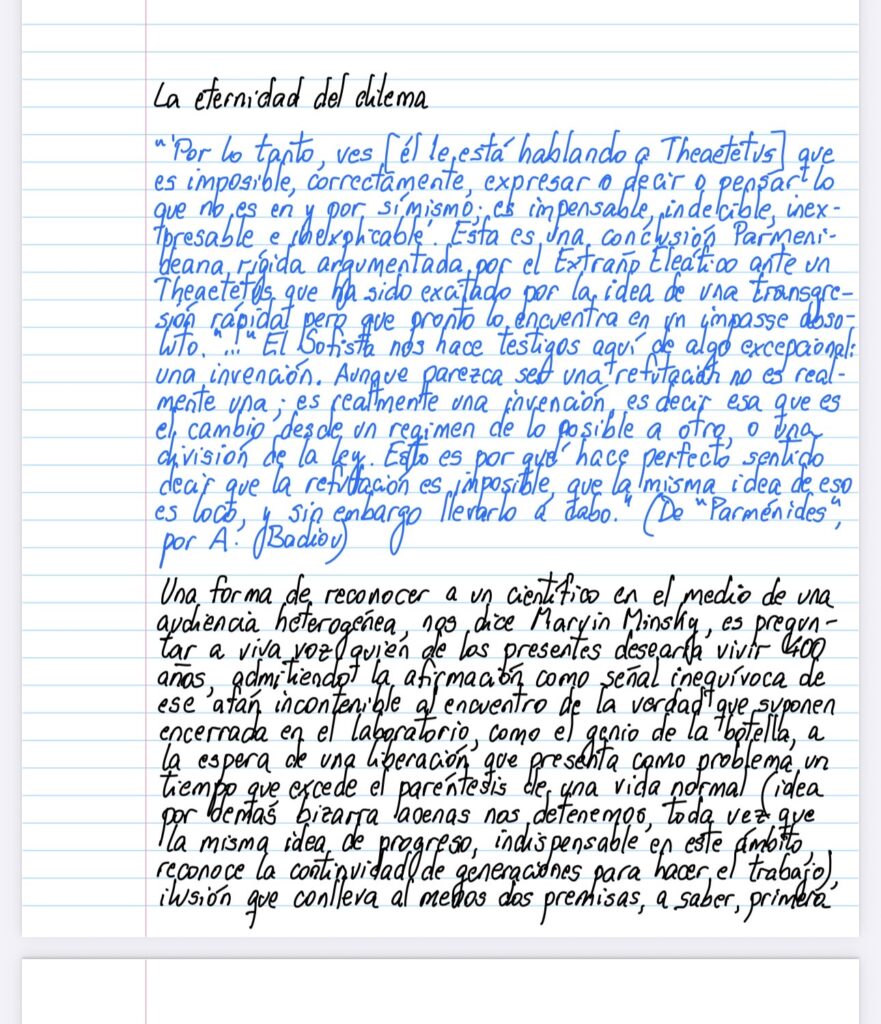 La eternidad del dilema
"'Por lo tanto, ves [él le está hablando a Theaetetus] que
es imposible, correctamente, expresar o decir o pensar lo
que no es en y por sí mismo; es impensable, indecible, inex-
presable e inexplicable'. Esta es una conclusión Parmeni-
deana rígida argumentada por el Extraño Eleático ante un
Theaetetus que ha sido excitado por la idea de una transgre-
sión rápida pero que pronto lo encuentra en un impasse abso-
luto." ... "El Sofista nos hace testigos aquí de algo excepcional:
una invención. Aunque parezca ser una refutación no es real-
mente una; es realmente una invención, es decir esa que es
el cambio desde un regimen de lo posible a otro, o una
división de la ley. Esto es por qué hace perfecto sentido
decir que la refutación es imposible, que la misma idea de eso
es loco, y sin embargo llevarlo a cabo." (De "Parménides",
por A. Badiou)
Una forma de reconocer a un científico en el medio de una
audiencia heterogénea, nos dice Marvin Minsky, es pregun-
tar a viva voz quien de los presentes desearía vivir 400
años, admitiendo la afirmación como señal inequívoca de
ese afán incontenible al encuentro de la verdad que suponen
encerrada en el laboratorio, como el genio de la botella, a
la espera de una liberación que presenta como problema un
tiempo que excede el paréntesis de una vida normal (idea
por demás bizarra apenas nos detenemos, toda vez que
la misma idea de progreso, indispensable en este ámbito,
reconoce la continuidad de generaciones para hacer el trabajo),
ilusión que conlleva al menos dos premisas, a saber, primera